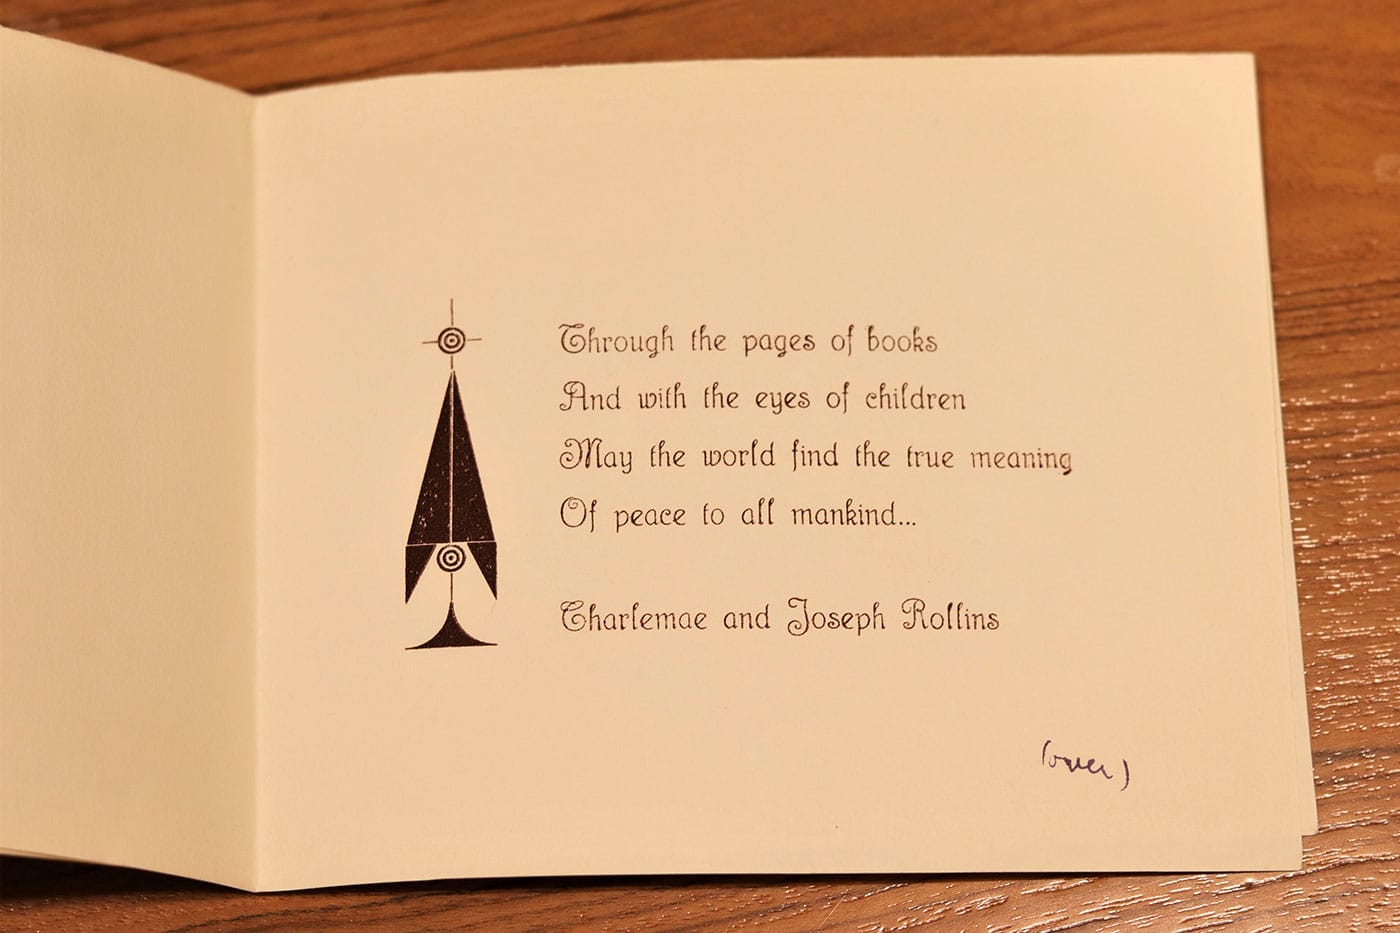 Through the pages of books
And with the eyes of children
May the world find the true meaning
Of peace to all mankind...
Charlemae and Joseph Rollins
(over)